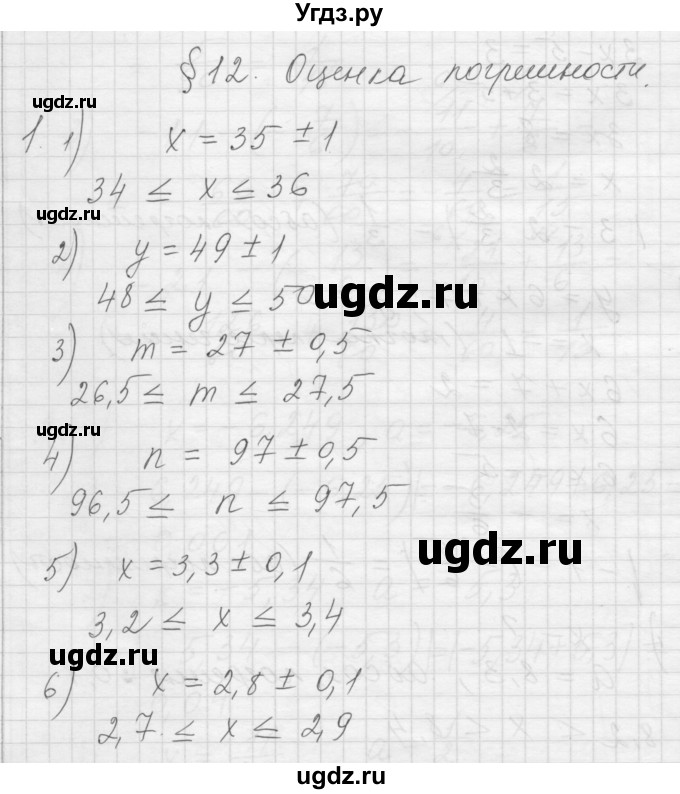 Угдз.ру
§12. Оценка погрешности.
ugdz.ru
1. 1) x = 35 ± 1
34 ≤ x ≤ 36
ugdz.ru
2) y = 49 ± 1
48 ≤ y ≤ 50
ugdz.ru
3) m = 27 ± 0,5
26,5 ≤ m ≤ 27,5
ugdz.ru
4) n = 97 ± 0,5
96,5 ≤ n ≤ 97,5
ugdz.ru
5) x = 3,3 ± 0,1
3,2 ≤ x ≤ 3,4
ugdz.ru
6) x = 2,8 ± 0,1
2,7 ≤ x ≤ 2,9
ugdz.ru